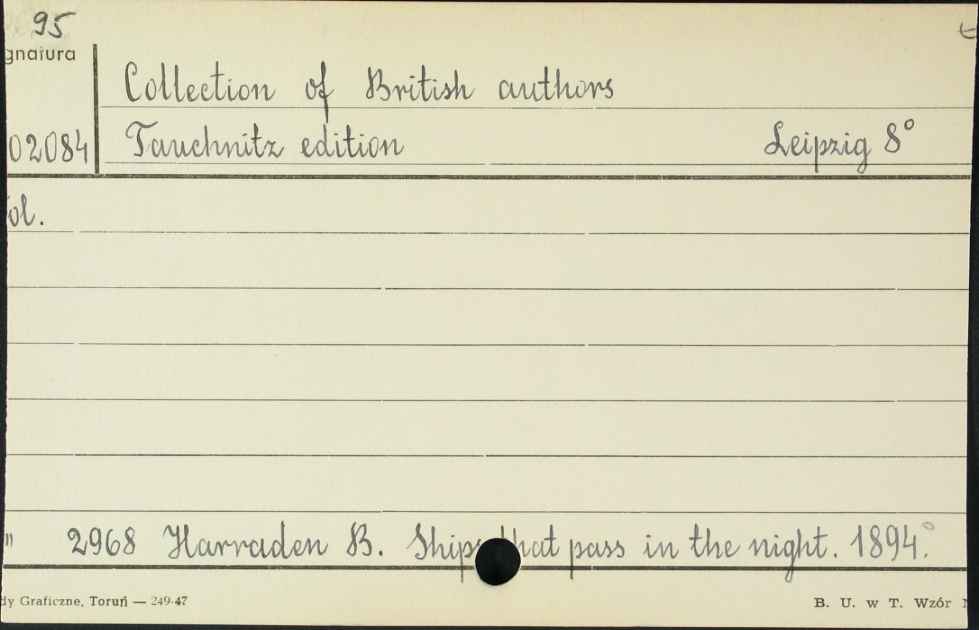 95
gnatura
Collection of British authors
02084 Tauchnitz edition Leipzig 8°
ol.
" 2968 Harraden B. Ships that pass in the night. 1894.°
dy Graficzne, Toruń — 249-47 B. U. w T. Wzór